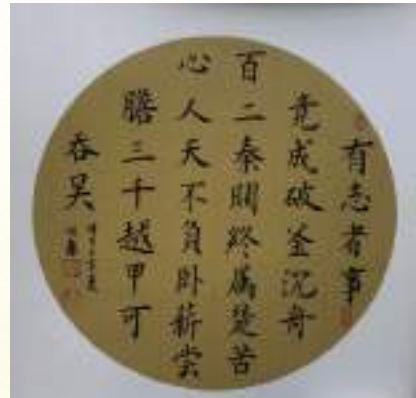 有志者事
竟成破釜沉舟
百二秦關終屬楚苦
心人天不負卧薪嘗
膽三千越甲可
吞吴